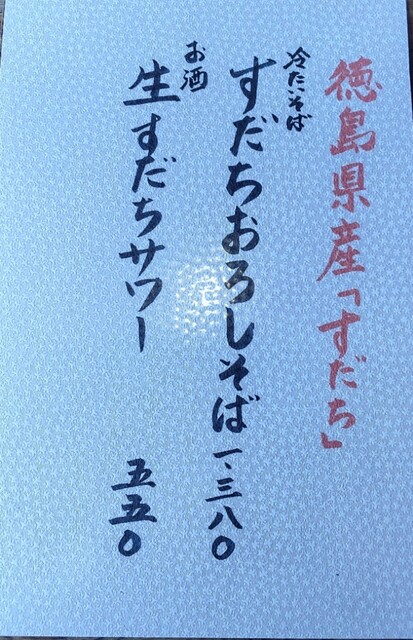 徳島県産「すだち」
冷たいそば
すだちおろしそば 一、三八〇
お酒
生すだちサワー 五五〇